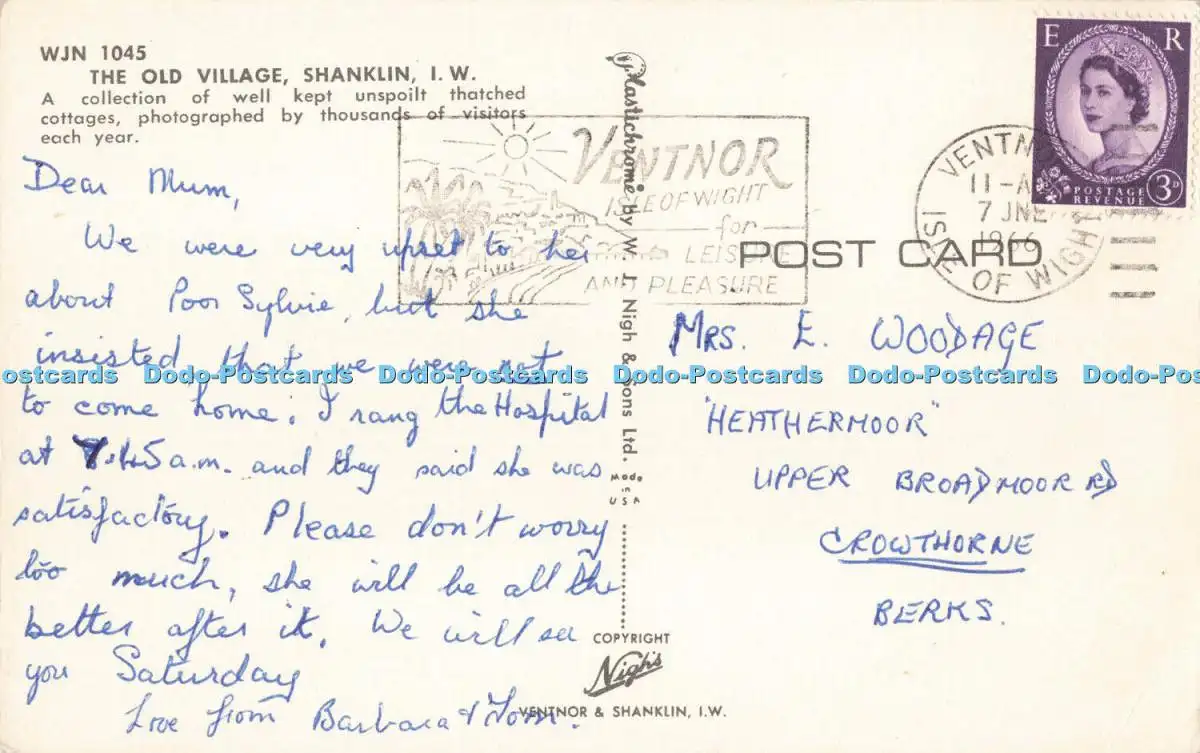 WJN 1045
THE OLD VILLAGE, SHANKLIN, I.W.
A collection of well kept unspoilt thatched
cottages, photographed by thousands of visitors
each year.
Dear Mum,
We were very upset to hear
about Poor Sylvie, but she
insisted that we were not
to come home. I rang the Hospital
at 7.45 a.m. and they said she was
satisfactory. Please don't worry
too much, she will be all the
better after it. We will see
you Saturday
Love from Barbara & Tom.
Plastichrome by W. J. Nigh & Sons Ltd.
Made
in
USA
COPYRIGHT
Nigh's
VENTNOR & SHANKLIN, I.W.
VENTNOR
ISLE OF WIGHT
for
LEISURE
AND PLEASURE
POST CARD
E R
POSTAGE
REVENUE
3D
VENTN
11-A
7 JNE
1966
ISLE OF WIGHT
MRS. E. WOODAGE
"HEATHERMOOR"
UPPER BROADMOOR RD
CROWTHORNE
BERKS.
ostcards Dodo-Postcards Dodo-Postcards Dodo-Postcards Dodo-Postcards Dodo-Postc